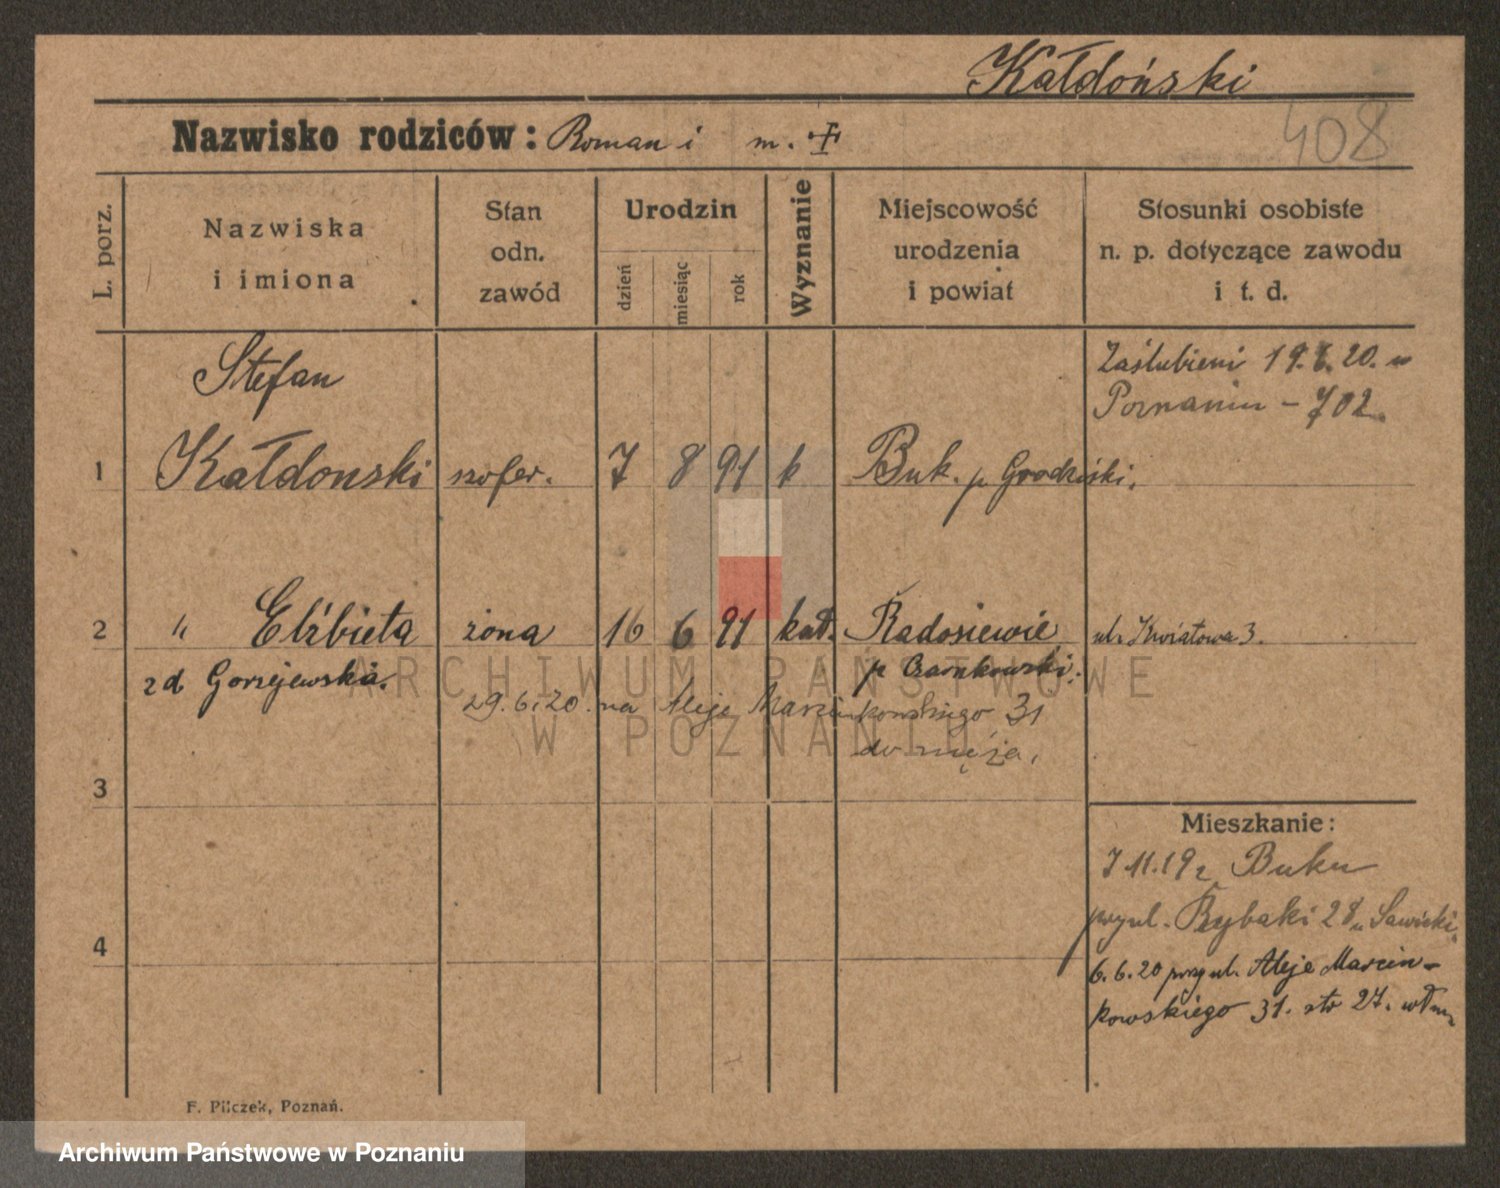 Kałdoński
408
Nazwisko rodziców: Roman i m. ✝
L. porz.
Nazwiska
i imiona
Stan
odn.
zawód
Urodzin
dzień
miesiąc
rok
Wyznanie
Miejscowość
urodzenia
i powiat
Stosunki osobiste
n. p. dotyczące zawodu
i t. d.
Stefan
Zaślubieni 19.6.20. w
Poznaniu - 702.
1 Kałdonski szofer. 7 8 91 k Buk. p Grodziski.
2 " Elżbieta żona 16 6 91 kat. Radosiewie ul. Kwiatowa 3.
zd Gorzejewska. p Czarnkowski.
29.6.20. na Aleje Marcinkowskiego 31
do męża.
3
Mieszkanie:
7 11.19 z Buku
przy ul. Rybaki 28 u Sawicki.
4
6.6.20 przy ul. Aleje Marcin-
kowskiego 31. str 27.
F. Pilczek, Poznań.
ARCHIWUM PAŃSTWOWE
W POZNANIU
Archiwum Państwowe w Poznaniu